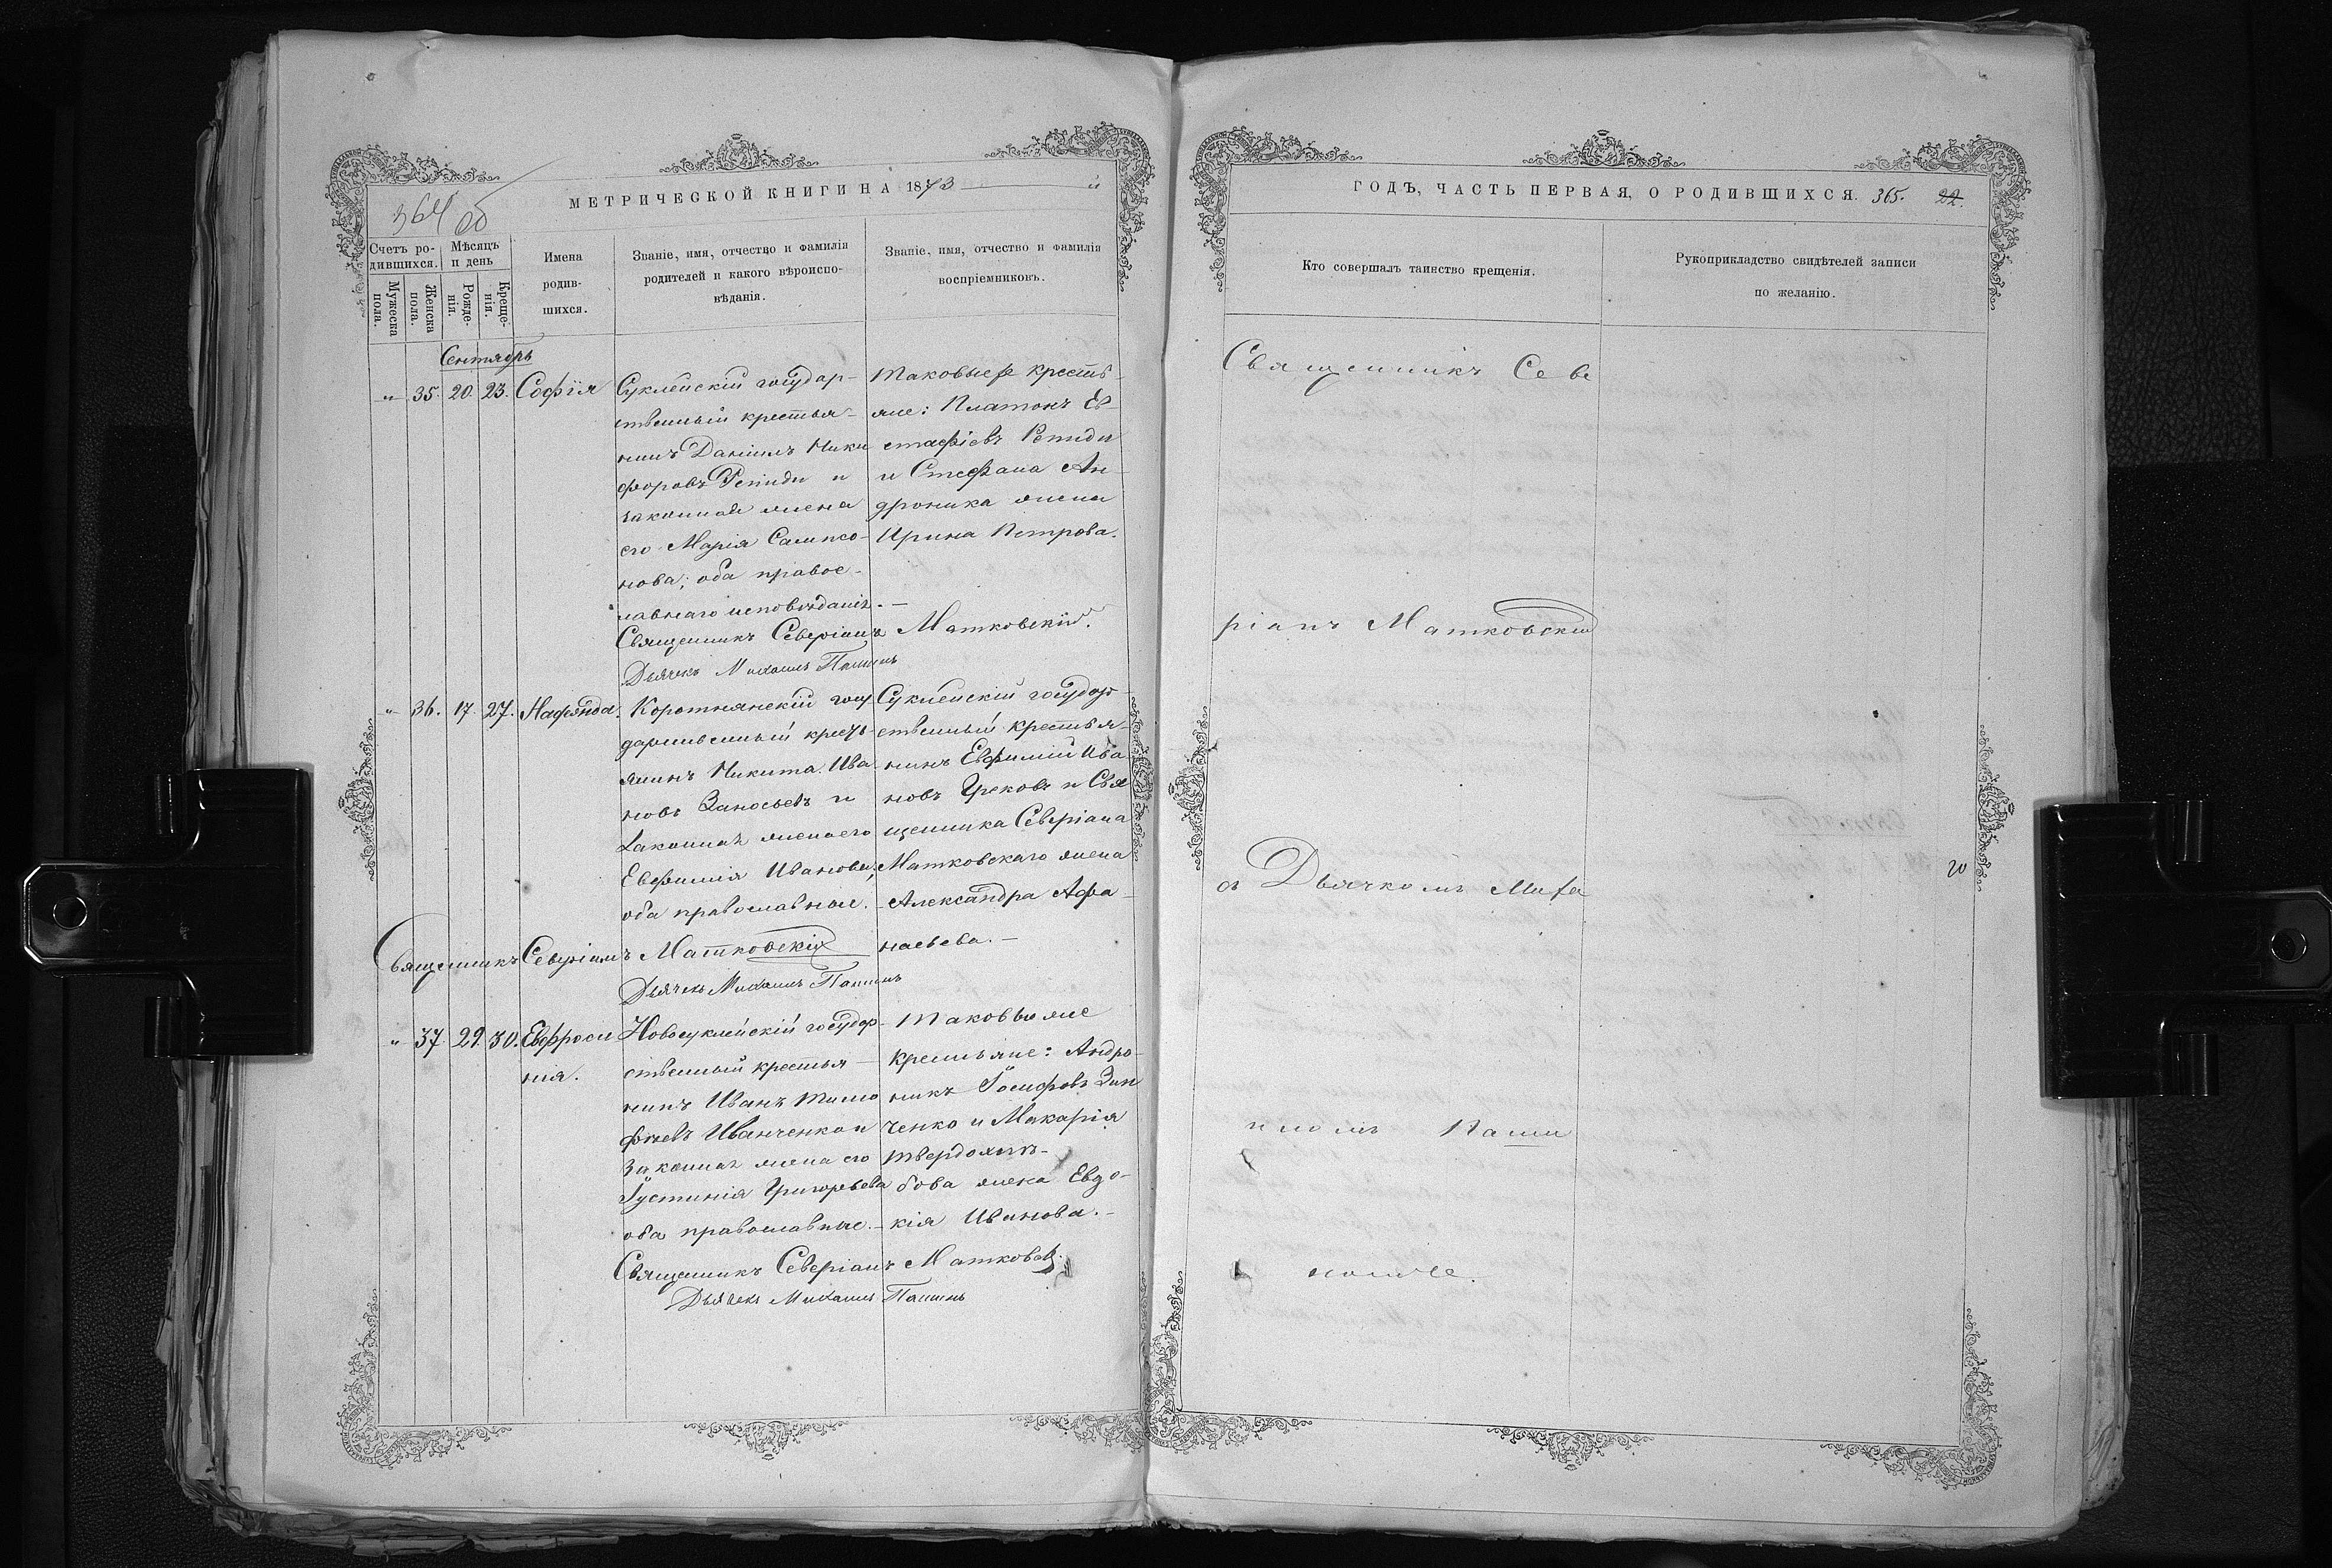 364 об
МЕТРИЧЕСКОЙ КНИГИ НА 1873 й
Счетъ ро-
дившихся.
Мѣсяцъ
и день
Мужеска
пола.
Женска
пола.
Рожде-
нія.
Креще-
нія.
Имена
родив-
шихся.
Званіе, имя, отчество и фамилія
родителей и какого вѣроиспо-
вѣданія.
Званіе, имя, отчество и фамилія
воспріемниковъ.
Сентябрь
„ 35. 20. 23. Софія
Суклейскій государ-
ственный крестья-
нинъ Даніилъ Ники
форовъ Репиди и
законная жена
его Марія Сампсо-
нова; оба правос-
лавнаго исповѣданія. —
Таковые же крестья-
яне: Платонъ Ев-
стафіевъ Репиди
и Стефана Ан-
дроника жена
Ирина Петрова.
Священникъ Северіанъ Матковскій.
Дьячекъ Михаилъ
„ 36. 17. 27.
Коротнянскій госу
дарственный кресть-
янинъ Никита Ива
новъ и
законная жена его
Евфимія Иванова;
оба православные.
Суклейскій государ-
ственный крестья-
нинъ Евфимій Ива
новъ Грековъ и Свя
щенника Северіана
Матковскаго жена
Александра Афа-
насьева. —
Священникъ Северіанъ Матковскій
Дьячекъ Михаилъ
„ 37. 29. 30. Евфроси
нія.
Новосуклейскій государ-
ственный крестья-
нинъ Иванъ Тимо
фѣевъ Иванченко и
законная жена его
Іустинія Григорьева
оба православные. —
Таковые же
крестьяне: Андро-
никъ Іосифовъ Зин
ченко и Макарія
Твердохлѣ-
бова жена Евдо-
кія Иванова. —
Священникъ Северіанъ Матковскій
Дьячекъ Михаилъ
ГОДЪ, ЧАСТЬ ПЕРВАЯ, О РОДИВШИХСЯ. 365. 22.
Кто совершалъ таинство крещенія.
Рукоприкладство свидѣтелей записи
по желанію.
Священникъ Севе
ріанъ Матковскій
съ Дьячкомъ Миха
иломъ